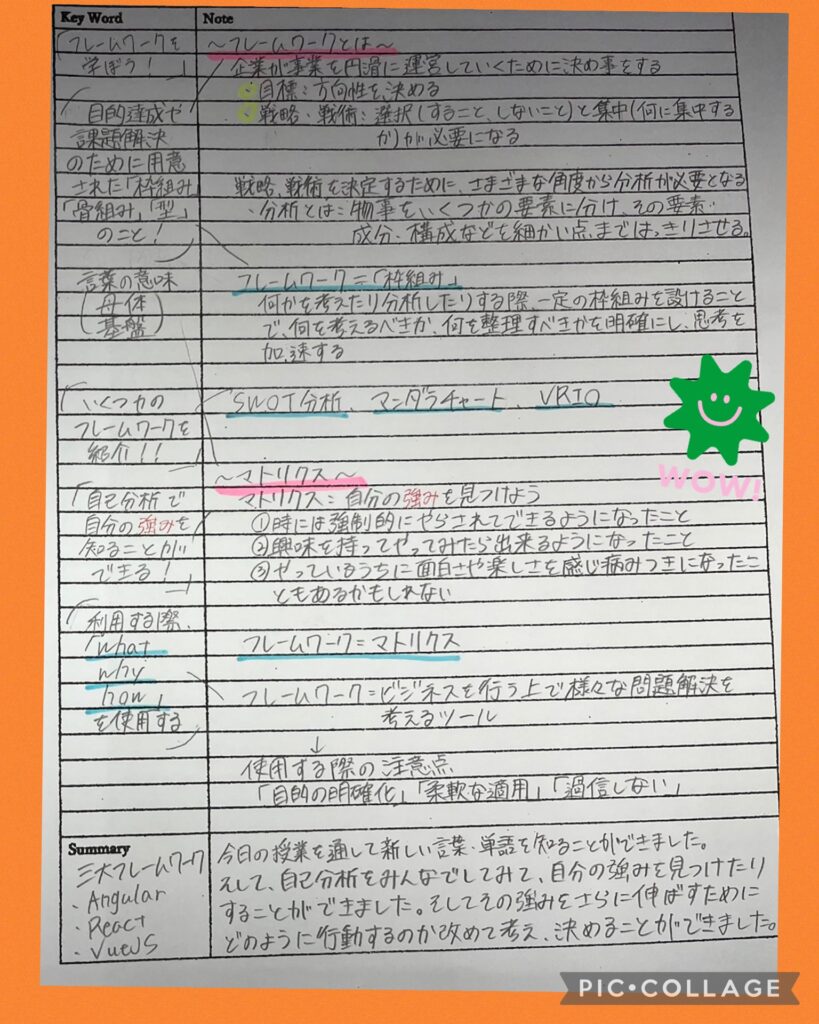 Key Word
Note
「フレームワークを
学ぼう！」
目的達成や
課題解決
のために用意
された「枠組み」
「骨組み」「型」
のこと！
言葉の意味
(母体
基盤)
「いくつかの
フレームワークを
紹介！！
「自己分析で
自分の強みを
知ることが
できる！」
利用する際、
「what
why
how」
を使用する
～フレームワークとは～
企業が事業を円滑に運営していくために決め事をする
目標：方向性を決める
戦略・戦術：選択(すること、しないこと)と集中(何に集中する
か)が必要になる
戦略、戦術を決定するために、さまざまな角度から分析が必要となる
・分析とは：物事をいくつかの要素に分け、その要素・
成分・構成などを細かい点まではっきりさせる。
フレームワーク=「枠組み」
何かを考えたり分析したりする際、一定の枠組みを設けること
で、何を考えるべきか、何を整理すべきかを明確にし、思考を
加速する
SWOT分析、マンダラチャート、VRIO
～マトリクス～
マトリクス：自分の強みを見つけよう
①時には強制的にやらされてできるようになったこと
②興味を持ってやってみたら出来るようになったこと
③やっているうちに面白さや楽しさを感じ病みつきになったこ
ともあるかもしれない
フレームワーク=マトリクス
フレームワーク=ビジネスを行う上で様々な問題解決を
考えるツール
↓
使用する際の注意点
「目的の明確化」「柔軟な適用」「過信しない」
WOW!
Summary
三大フレームワーク
・Angular
・React
・VueJS
今日の授業を通して新しい言葉・単語を知ることができました。
そして、自己分析をみんなでしてみて、自分の強みを見つけたり
することができました。そしてその強みをさらに伸ばすために
どのように行動するのか改めて考え、決めることができました。
PIC•COLLAGE